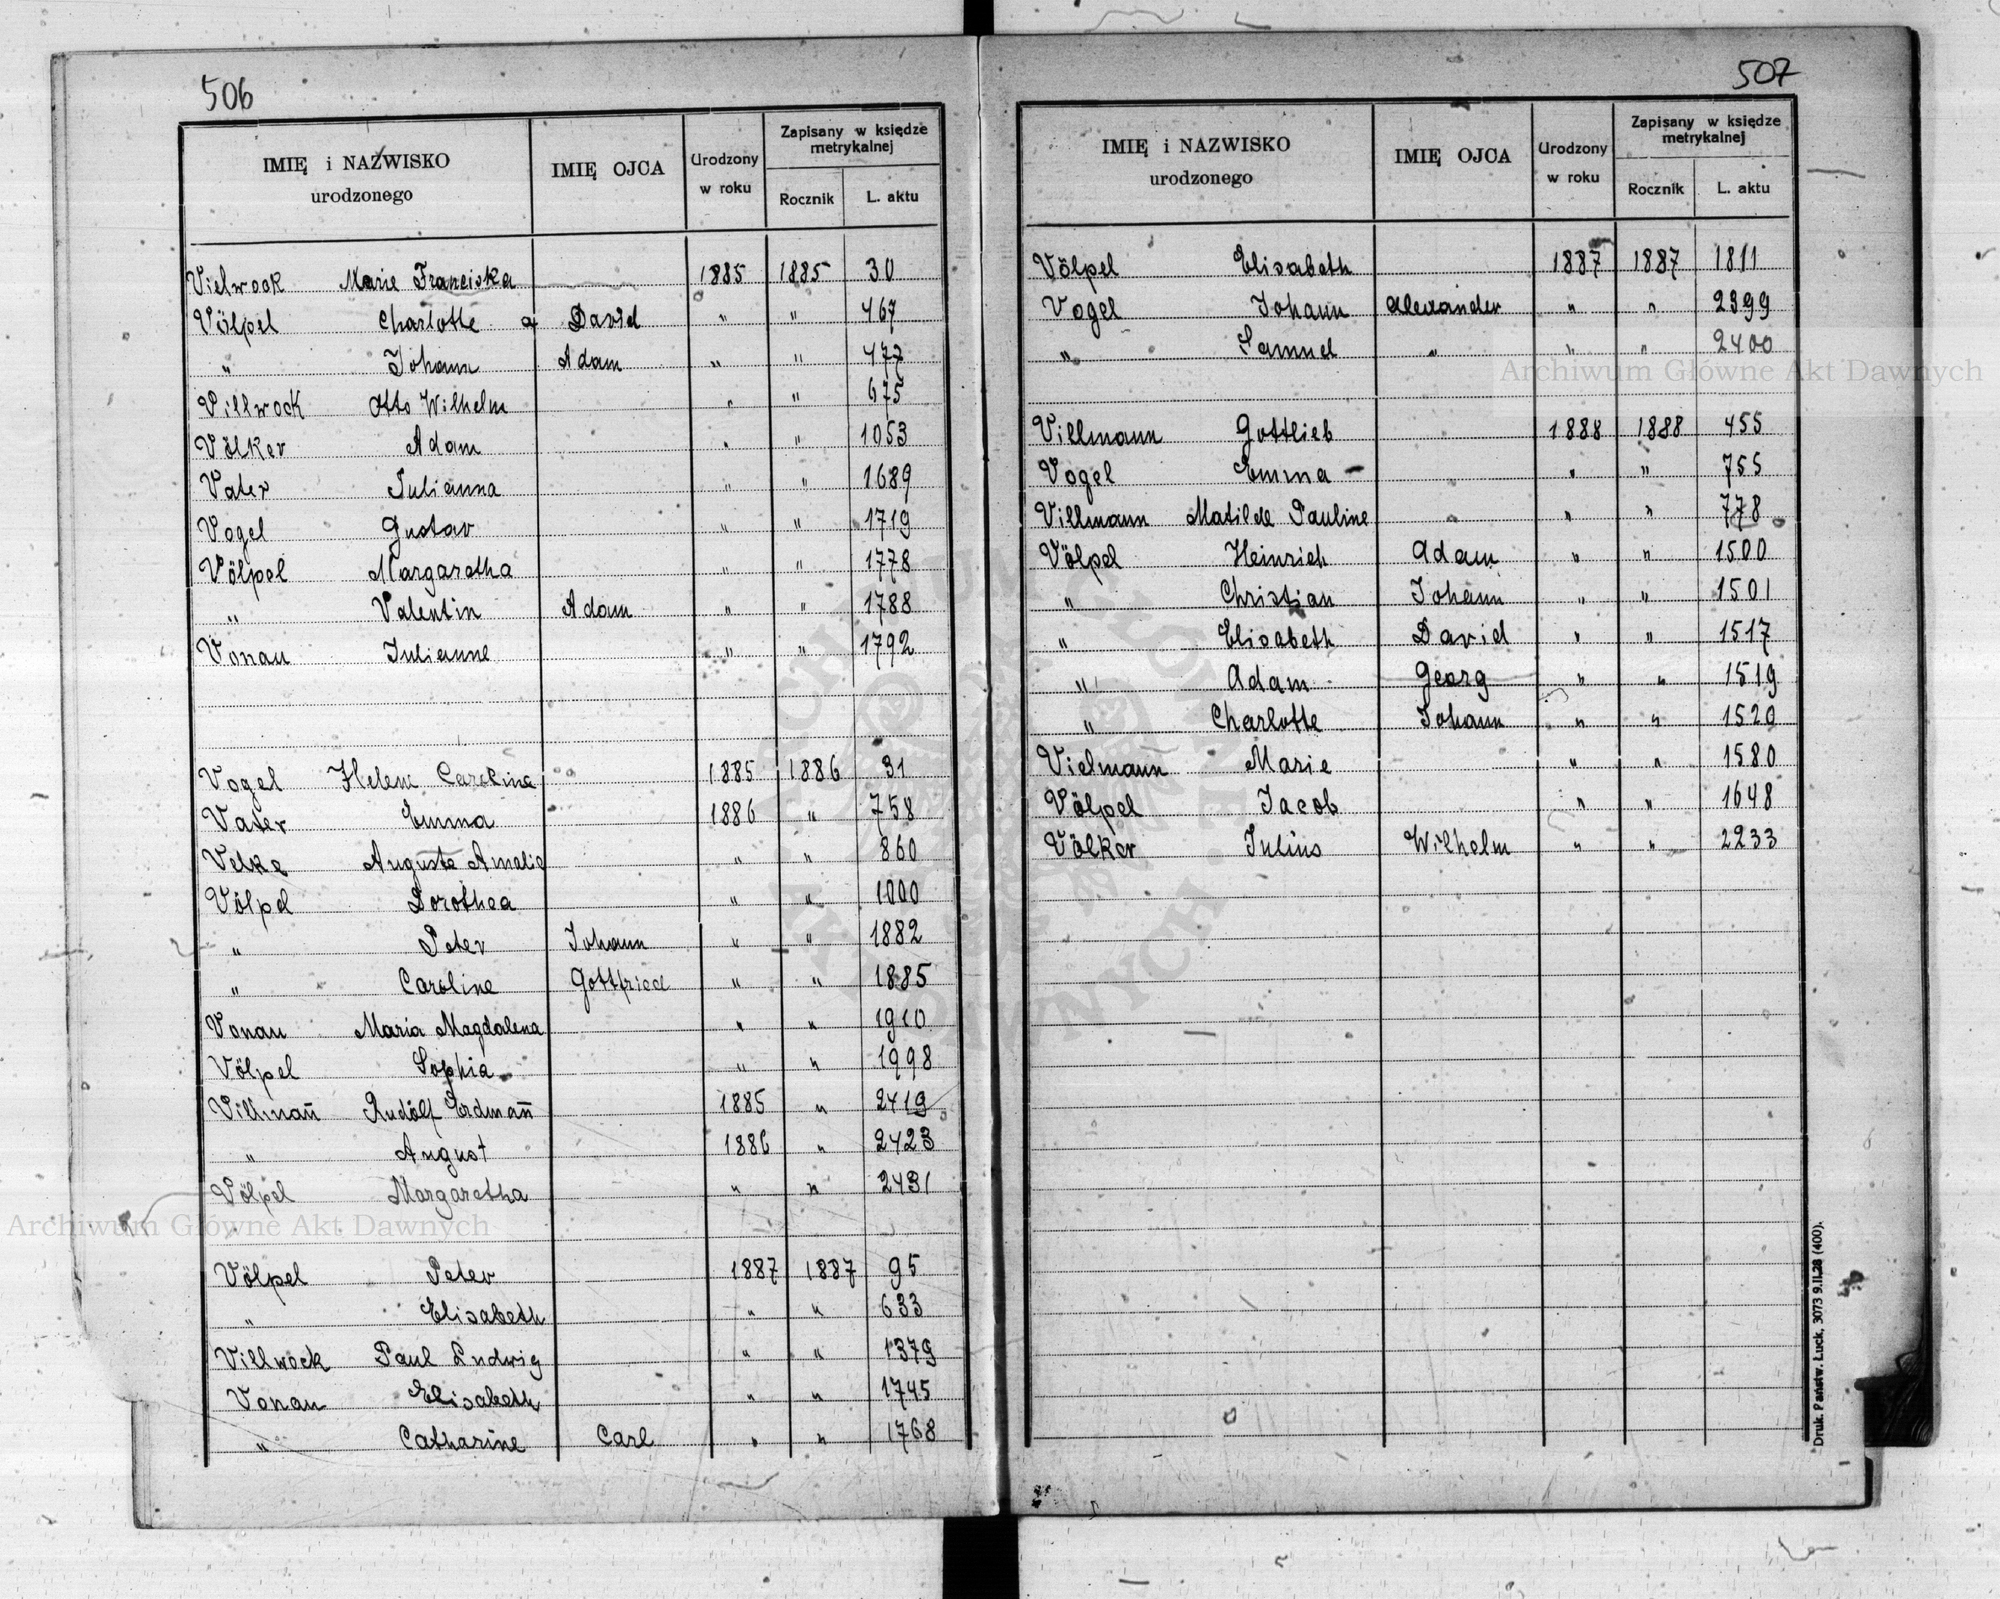 506
IMIĘ i NAZWISKO urodzonego IMIĘ OJCA Urodzony w roku Zapisany w księdze metrykalnej Rocznik L. aktu
Vielwock Marie Franciska 1885 1885 30
Völpel Charlotte David " " 467
" Johann Adam " " 477
Villwock Otto Wilhelm " " 675
Völker Adam " " 1053
Vater Julianna " " 1689
Vogel Gustav " " 1719
Völpel Margaretha " " 1778
" Valentin Adam " " 1788
Vonau Julianne " " 1792
Vogel Helene Caroline 1885 1886 31
Vater Emma 1886 " 758
Velke Auguste Amelie " " 860
Völpel Dorothea " " 1000
" Peter Johann " " 1882
" Caroline Gottfried " " 1885
Vonau Maria Magdalena " " 1910
Völpel Sophia " " 1998
Villman̄ Rudolf Erdman̄ 1885 " 2419
" August 1886 " 2423
Völpel Margaretha " " 2431
Völpel Peter 1887 1887 95
" Elisabeth " " 633
Villwock Paul Ludwig " " 1379
Vonau Elisabeth " " 1745
" Catharine Carl " " 1768
507
IMIĘ i NAZWISKO urodzonego IMIĘ OJCA Urodzony w roku Zapisany w księdze metrykalnej Rocznik L. aktu
Völpel Elisabeth 1887 1887 1811
Vogel Johann Alexander " " 2399
" Samuel " " " 2400
Villmann Gottlieb 1888 1888 455
Vogel Emma " " 755
Villmann Matilde Pauline " " 778
Völpel Heinrich Adam " " 1500
" Christian Johann " " 1501
" Elisabeth David " " 1517
" Adam Georg " " 1519
" Charlotte Johann " " 1520
Vielmann Marie " " 1580
Völpel Jacob " " 1648
Völker Julius Wilhelm " " 2233
Druk. Państw. Łuck, 3073 9.II.28 (400).
Archiwum Główne Akt Dawnych
Archiwum Główne Akt Dawnych
ARCHIWUM GŁÓWNE · AKT DAWNYCH ·